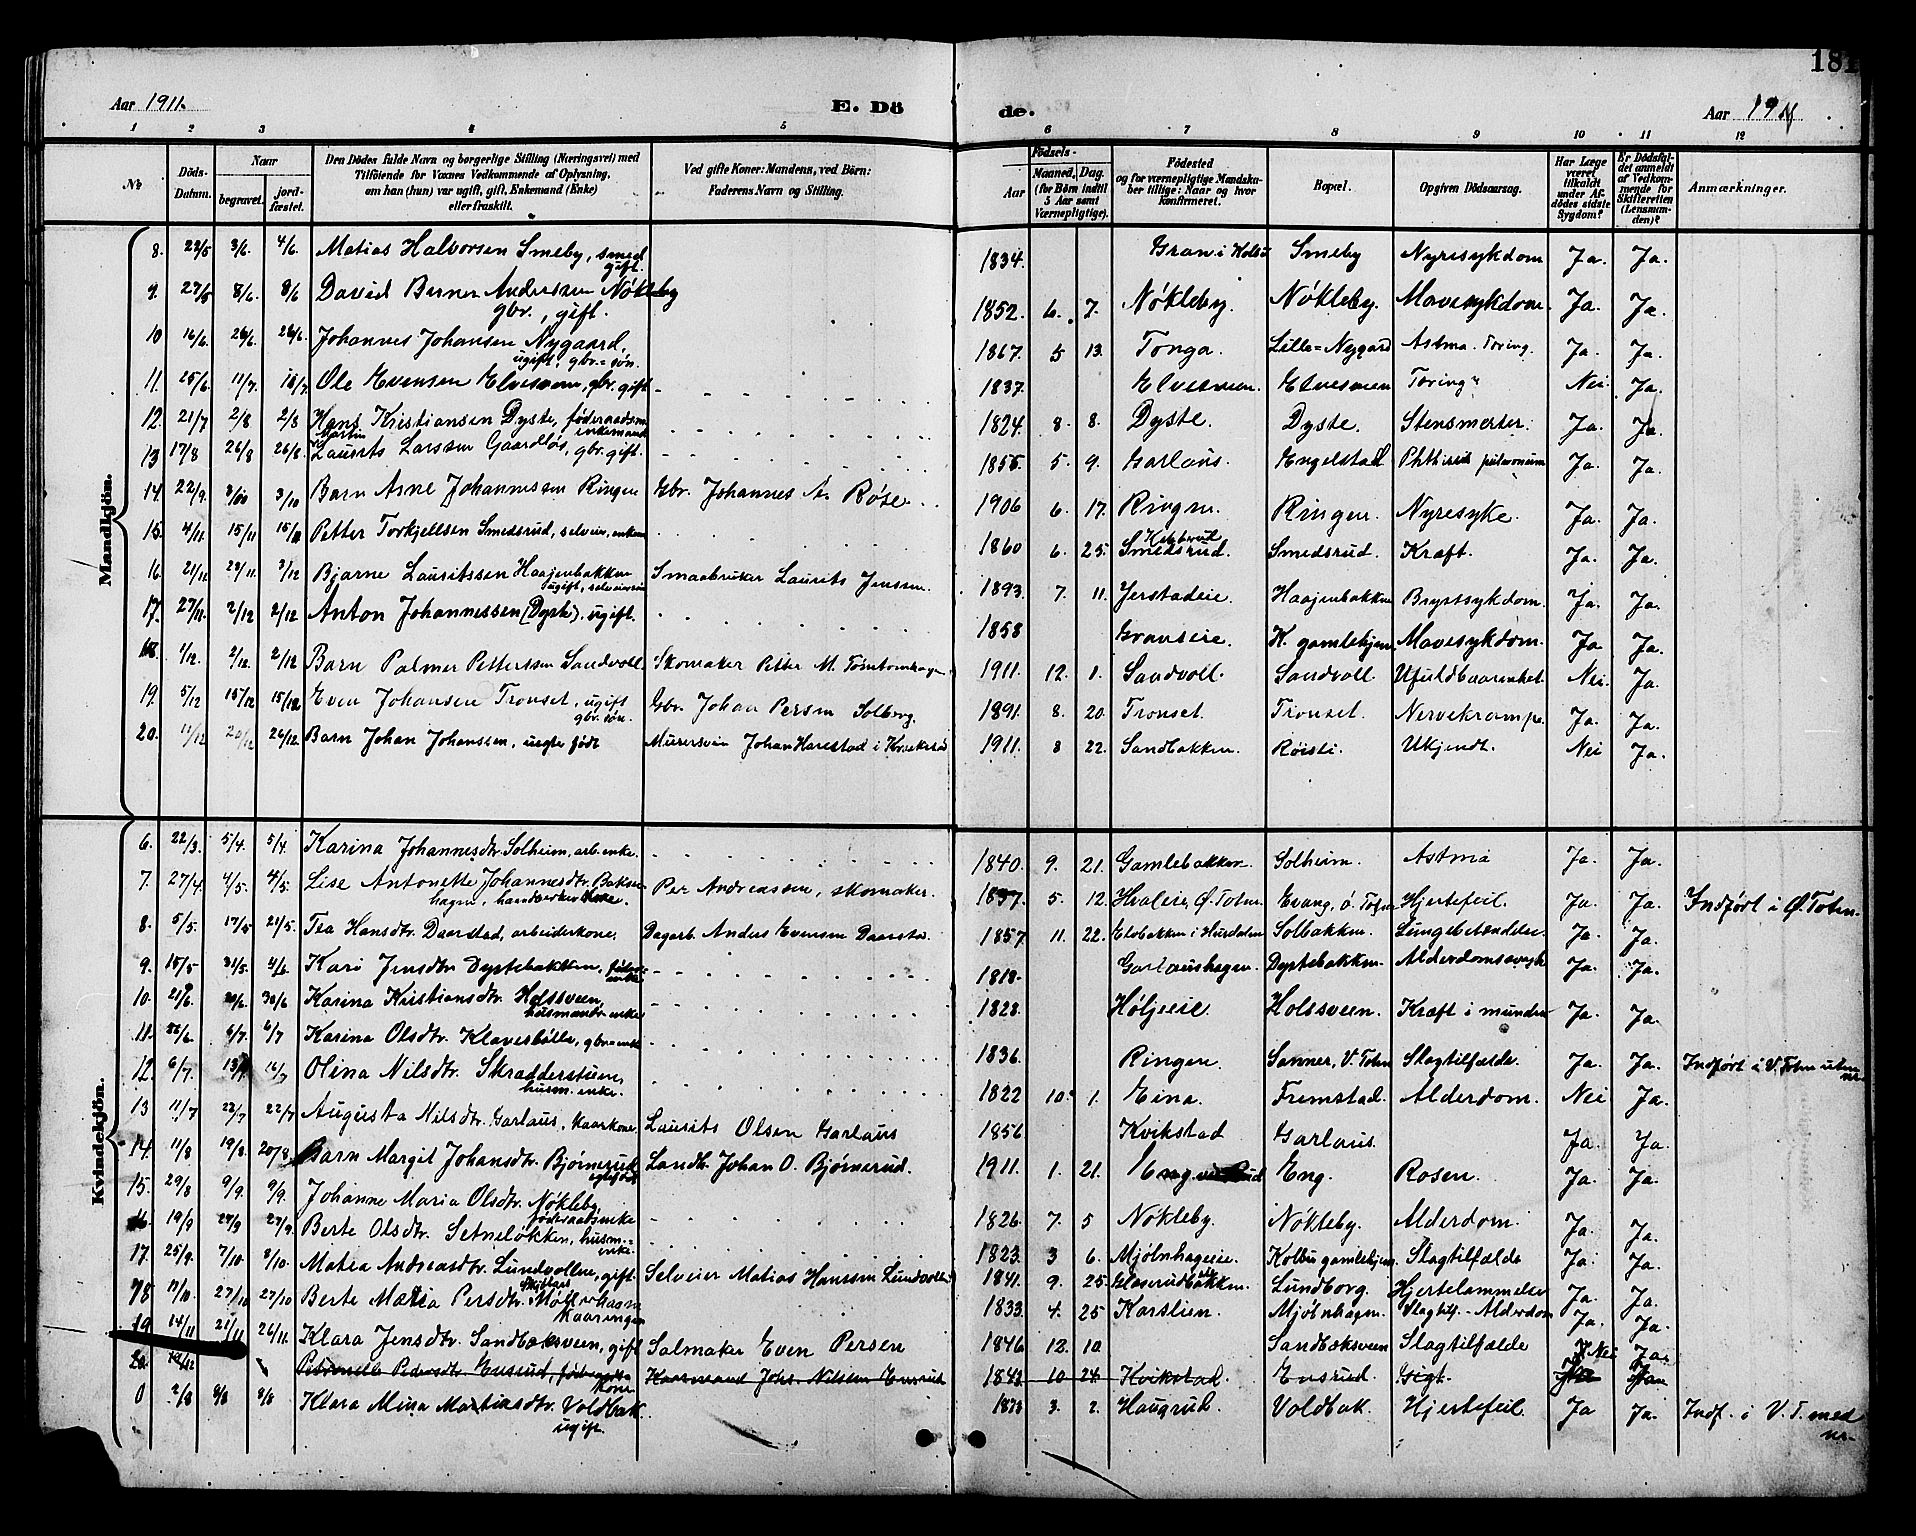 181
Aar 1911. E. Dö de. Aar 1911
1 2 3 4 5 6 7 8 9 10 11 12
No Döds-Datum. Naar begravet. jord-fæstet. Den Dödes fulde Navn og borgerlige Stilling (Næringsvei) med Tilföiende for Voxnes Vedkommende af Oplysning, om han (hun) var ugift, gift, Enkemand (Enke) eller fraskilt. Ved gifte Koner: Mandens, ved Börn: Faderens Navn og Stilling. Födsels- Aar Maaned, Dag. (for Börn indtil 5 Aar samt Værnepligtige). Födested og for værnepligtige Mandska-ber tillige: Naar og hvor konfirmeret. Bopæl. Opgiven Dödsaarsag. Har Læge været tilkaldt under Af-dödes sidste Sygdom? Er Dödsfal-det anmeldt af Vedkom-mende for Skifteretten (Lensman-den)? Anmærkninger.
Mandkjön.
8. 23/5 3/6 4/6 Matias Halvorsen Smeby, smed gift. 1834. Gran i Smeby Nyresykdom Ja. Ja.
9. 27/5 8/6. 8/6 David Berner Andersen Nøkleby gbr., gift. 1852. 6. 7. Nøkleby. Nøkleby. Mavesykdom Ja. Ja.
10 16/6. 26/6. 26/6. Johannes Johansen Nygaard, ugift, gbr. søn. 1867. 5 13. Tonga. Lille-Nygard Astma. Tæring. Ja. Ja.
11. 25/6. 11/7. 16/7 Ole Evensen Elvesveen, gbr. gift 1837. Elvesveen. Elvesveen Tæring Nei Ja.
12. 21/7 2/8 2/8 Hans Kristiansen Dyste, føderaadsm enkemand 1824. 8. 8. Dyste. Dyste. Stensmerter. Ja. Ja.
13 17/8 26/8 26/8. Laurits Martin Larssen Gaardløs, gbr. gift. 1855. 5. 9. Garlaus. Engelstad Phthisis pulmonum Ja. Ja.
14. 22/9. 3/10 3/10 Barn Arne Johannessen Ringen Gbr. Johannes A. Røise 1906 6. 17. Ringen. Ringen. Nyresyke. Ja. Ja.
15. 4/11. 15/11 15/11 Petter Torkjellsen Smedsrud, selveier, enkem 1860 6. 25. Smedsrud. Smedsrud. Kræft. Ja. Ja.
16. 21/11. 29/11. 3/12 Bjarne Lauritssen Haajenbakken ugift, selveiersøn Smaabruker Laurits Jenssen. 1893. 7. 11. Jerstadeie. Haajenbakken Brystsykdom. Ja. Ja.
17. 27/11. 2/12 2/12 Anton Johannessen (Dyste), ugift. 1858 Granseie. K. gamlehjem Mavesykdom. Ja Ja.
18. 1/12. 2/12. 2/12 Barn Palmer Petterssen Sandvoll Skomaker Petter M. Tømtomhagen 1911. 12. 1. Sandvoll. Sandvoll. Ufuldbaarenhet. Nei. Ja.
19. 5/12 15/12 15/12 Even Johansen Tronset, ugift gbr. søn. Gbr. Johan Persen Solberg. 1891. 8. 20. Tronset. Tronset. Nervekrampe. Ja. Ja.
20. 11/12 20/12 26/12. Barn Johan Johanssen, uegte født Murersvein Johan Harestad i Kvikstad 1911. 8 22. Sandbakken. Røisti. Ukjendt. Nei Ja.
Kvindekjön.
6. 22/3. 5/4. 5/4. Karina Johannesdtr. Solheim, arb. enke. 1840. 9. 21. Gamlebakken. Solheim. Astma Ja. Ja.
7. 27/4. 4/5. 4/5. Lise Antonette Johannesdtr. Bakkenhagen, haandverkerkone. Per Andreassen, skomaker. 1837. 5. 12. Hvaleie, Ø. Toten. Evang, Ø. Toten Hjertefeil. Ja. Ja. Indført i Ø. Toten.
8. 5/5. 17/5 21/5. Tea Hansdtr. Daarstad, arbeiderkone. Dagarb. Anders Evensen Daarstad. 1857. 11. 22. Elvbakken i Hurdalen Solbakken. Lungebetændelse. Ja. Ja.
9. 15/5 31/5. 4/6. Kari Jensdtr. Dystebakken, enke 1818. Garlaushagen. Dystebakken. Alderdomssvagh Ja. Ja.
10. 21/6. 30/6. 30/6 Karina Kristiansdtr. Holssveen, husmandsenke 1828. Høljeeie Holssveen. Kræft i munden Ja. Ja.
11. 6/7. 6/7 Karina Olsdtr. Klavesbølle, gbr. enke 1836. Ringen. Sanner, V. Toten. Slagtilfælde. Ja. Ja. Indført i V. Toten uten nr.
12. 6/7. 13/7 16/7 Olina Nilsdtr. Skrædderstuen, husm. enke. 1822 10. 1. Eina. Fremstad. Alderdom. Nei Ja.
13 11/7 22/7 22/7 Augusta Nilsdtr. Garlaus, Kaarkone. Laurits Olsen Garlaus 1856 Kvikstad Garlaus. Ja. Ja.
14. 11/8 19/8. 20/8 Barn Margit Johansdtr. Bjørnerud Landh. Johan O. Bjørnerud. 1911. 1. 21. Eng. Rosen. Ja. Ja.
15. 29/8 9/9. 9/9. Johanne Maria Olsdtr. Nøkleby. føderaadsenke 1826. 7. 5 Nøkleby. Nøkleby. Alderdom. Ja. Ja.
16 19/9 27/9 27/9. Berte Olsdtr. Setneløkken, husm.-enke. 1823. 3 6. Mjølnhageeie. Kolbu gamlehjem Slagtilfælde Ja. Ja.
17. 25/9. 7/10 8/10. Matea Andreasdtr. Lundvollen, gift. Selveier Matias Hanssen Lundvollen 1841. 9. 25. Glæserudbakken. Lundborg. Hjertelammelse Ja. Ja.
18 17/10. 27/10 27/10 Berte Matea Persdtr. Mjølnhagen 1833. 4. 25 Karslien. Mjølnhagen. Slagtilf. - Alderdom Ja. Ja.
19 14/11 21/11 26/11. Klara Jensdtr. Sandbaksveen, gift Salmaker Even Persen 1846 12. 10. Sandbaksveen Slagtilfælde Nei Ja.
20. Petronelle Pedersdtr. Ensrud, kone Kaarmand Johs. Nilsen Ensrud 1843 10 24. Kvikstad. Ensrud. Gigt.
0 2/8 8/8 8/8 Klara Mina Mathiasdtr. Voldbak. ugift. 1878 3. 2. Haugrud. Voldbak. Hjertefeil. Ja Ja. Indf. i V. T. med nr.